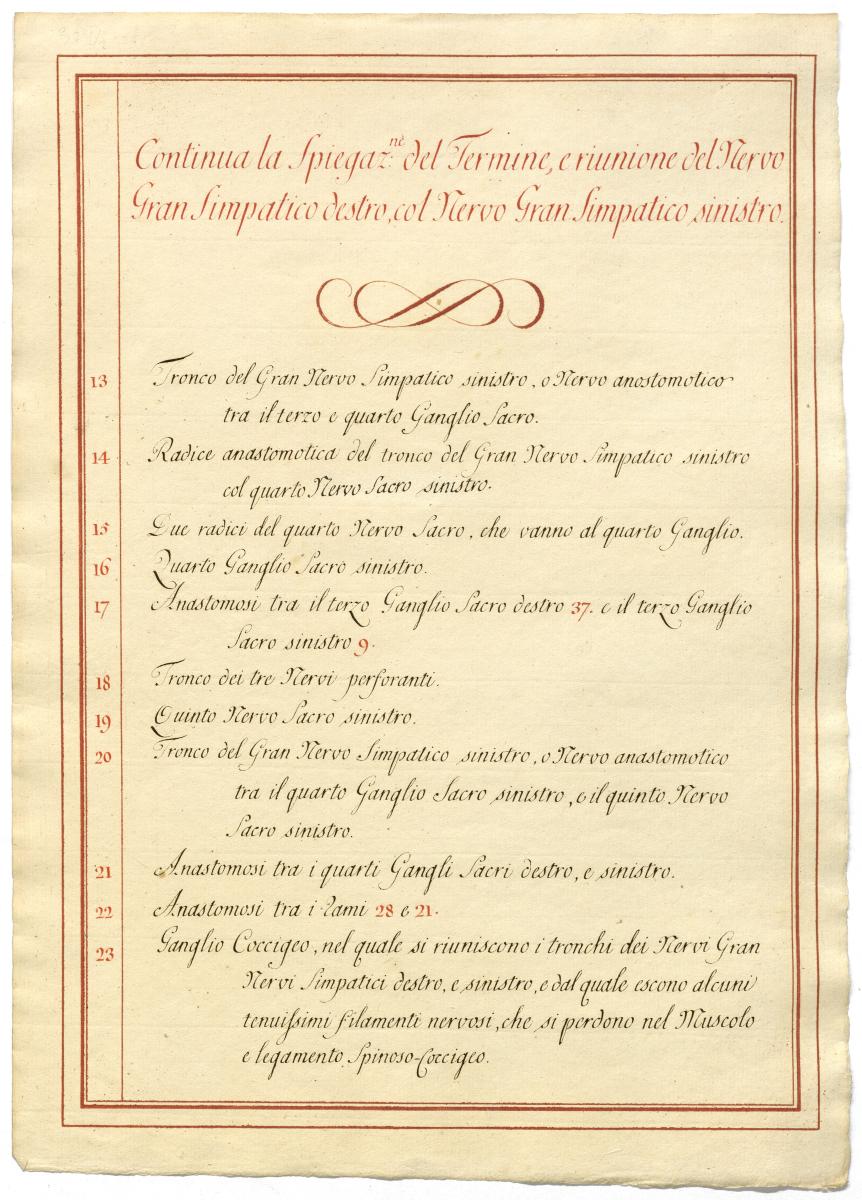 Continua la Spiegaz.ne del Termine, e riunione del Nervo
Gran Simpatico destro, col Nervo Gran Simpatico sinistro.
13 Tronco del Gran Nervo Simpatico sinistro, o Nervo anostomotico
tra il terzo e quarto Ganglio Sacro.
14 Radice anastomotica del tronco del Gran Nervo Simpatico sinistro
col quarto Nervo Sacro sinistro.
15 Due radici del quarto Nervo Sacro, che vanno al quarto Ganglio.
16 Quarto Ganglio Sacro sinistro.
17 Anastomosi tra il terzo Ganglio Sacro destro 37. e il terzo Ganglio
Sacro sinistro 9.
18 Tronco dei tre Nervi perforanti.
19 Quinto Nervo Sacro sinistro.
20 Tronco del Gran Nervo Simpatico sinistro, o Nervo anastomotico
tra il quarto Ganglio Sacro sinistro, e il quinto Nervo
Sacro sinistro.
21 Anastomosi tra i quarti Gangli Sacri destro, e sinistro.
22 Anastomosi tra i rami 28 e 21.
23 Ganglio Coccigeo, nel quale si riuniscono i tronchi dei Nervi Gran
Nervi Simpatici destro, e sinistro, e dal quale escono alcuni
tenuissimi filamenti nervosi, che si perdono nel Muscolo
e legamento Spinoso-Coccigeo.